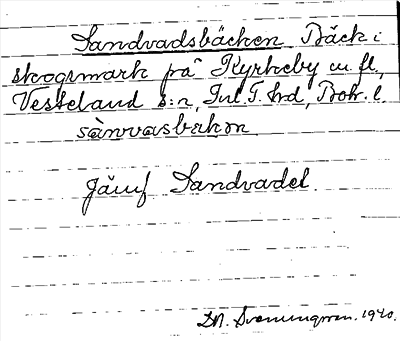 Sandvadsbäcken Bäck i
skogsmark på Kyrkeby m. fl.,
Vesteland s:n, Inl. T. hd, Boh. l.
sànvasbäkən
Jämf Sandvadet.
D.A. Svenungsson. 1940.